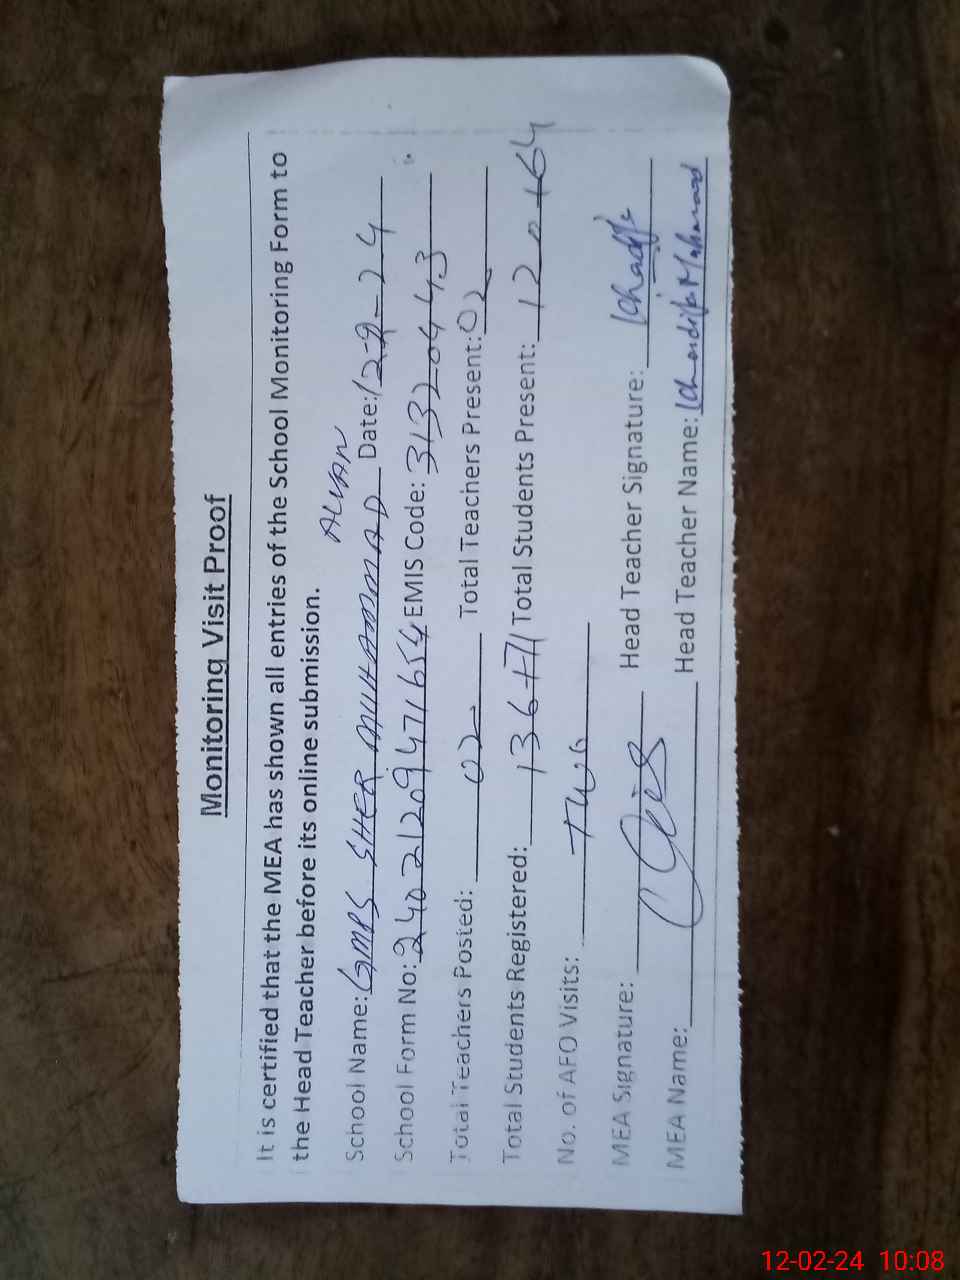 Monitoring Visit Proof
It is certified that the MEA has shown all entries of the School Monitoring Form to
the Head Teacher before its online submission.
School Name: GMPS SHER MUHAMMAD ALVAN Date: 12-2-24
School Form No: 24021209471654 EMIS Code: 31320443
Total Teachers Posted: 02 Total Teachers Present: 02
Total Students Registered: 136+71 Total Students Present: 120+64
No. of AFO Visits: Two
MEA Signature: Head Teacher Signature:
MEA Name: Head Teacher Name:
12-02-24 10:08